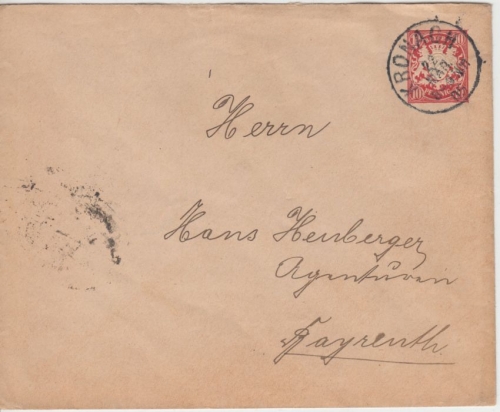 KRONACH
MAR
10
Herrn
Hans Heuberger
Agenturen
Bayreuth